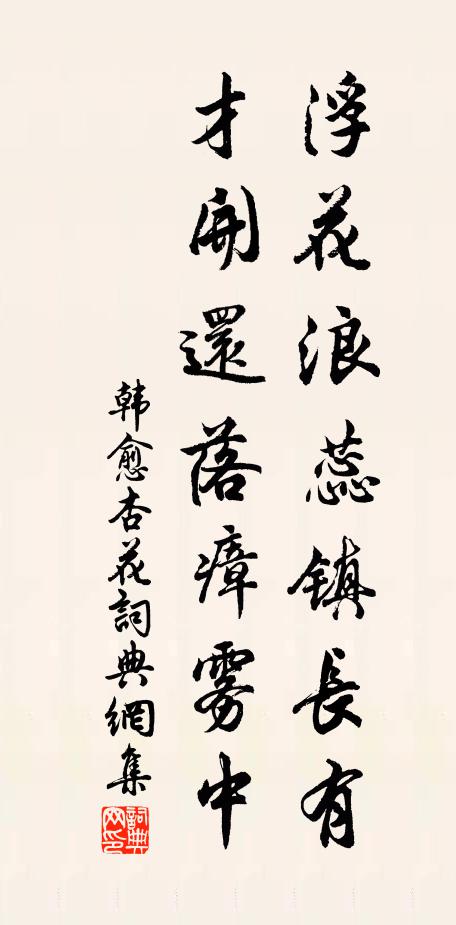 浮花浪蕊镇長有
才開還落瘴雾中
韩愈杏花詞典網集
詞典网印